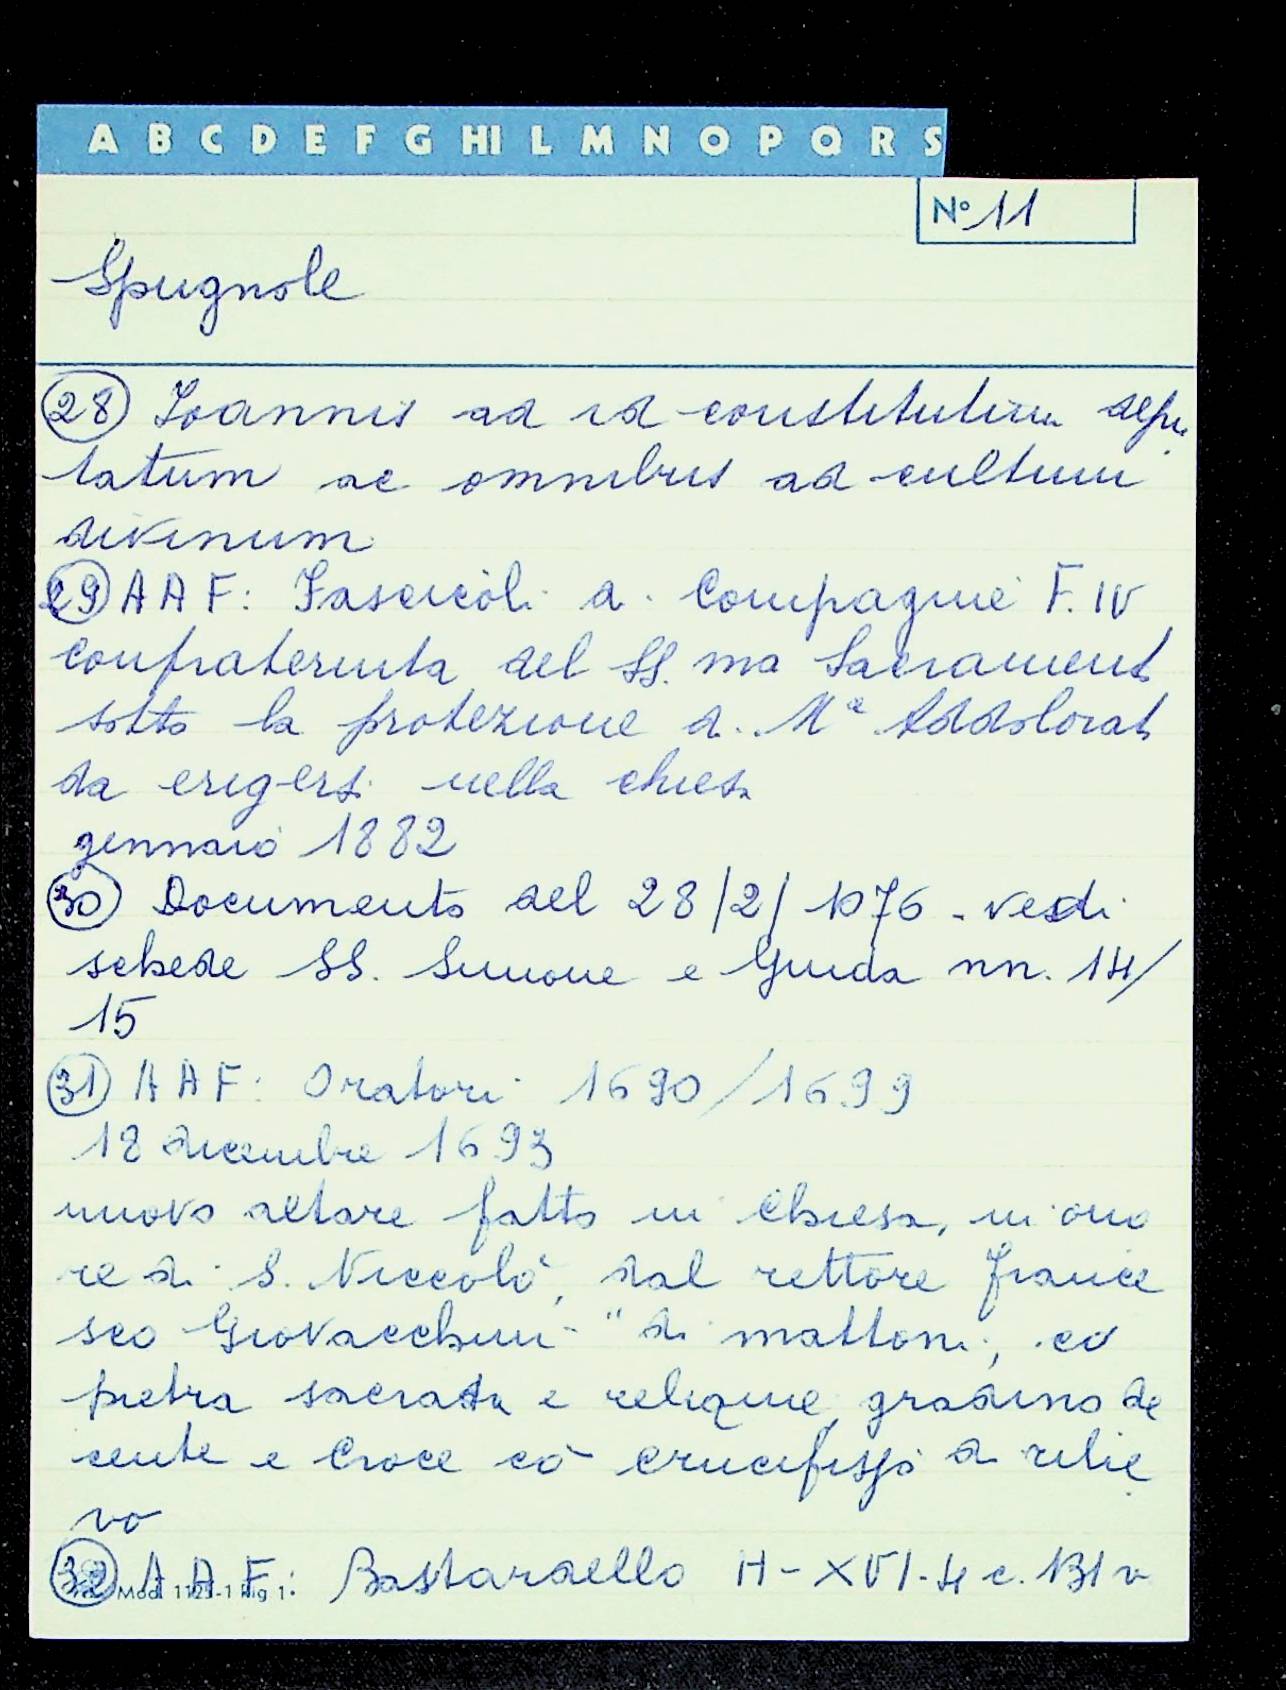 A B C D E F G HI L M N O P Q R S
N° 11
Spugnole
28 Ioannis ad id constitutum depu
tatum ac omnibus ad cultum
divinum
29 A A F: Fascicoli di Compagnie F. IV
Confraternita del SS.mo Sacrament
sotto la protezione di Mª Addolorat
da erigersi nella chiesa
gennaio 1882
30 Documento del 28/2/1076 - vedi
schede SS. Simone e Giuda nn. 14/
15
31 A A F: Oratori 1690/1699
18 dicembre 1693
nuovo altare fatto in chiesa, in ono
re di S. Niccolò, dal rettore France
sco Giovacchini "di mattoni, cō
pietra sacrata e reliquie, gradino de
cente e Croce cō crucifisso di rilie
vo
32 A A F: Bastardello H-XVI.4 c. 131 v
Mod. 1125-1 Rig 1